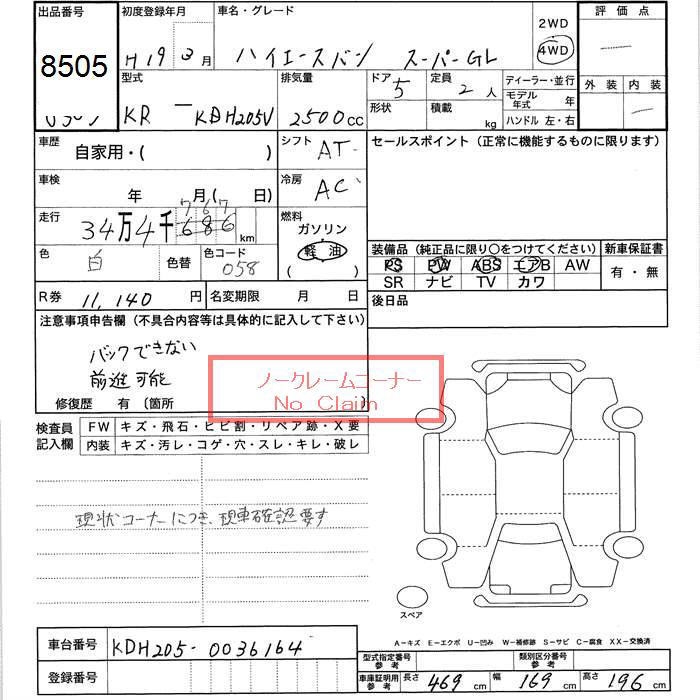 出品番号 初度登録年月 車名・グレード 評価点
8505 H19 3月 ハイエースバン スーパーGL 2WD 4WD
外装 内装
型式 排気量 ドア 5 定員 2人 ディーラー・並行
KR-KDH205V 2500cc 形状 積載 kg モデル年式 年
ハンドル 左・右
車歴 自家用・( ) シフト AT セールスポイント(正常に機能するものに限ります)
車検 年 月( 日) 冷房 AC
767
走行 34万4千686km 燃料 ガソリン
軽油
( )
色 白 色替 色コード 058
装備品(純正品に限り○をつけてください) 新車保証書
PS PW ABS エアB AW 有・無
SR ナビ TV カワ
R券 11,140円 名変期限 月 日 後日品
注意事項申告欄(不具合内容等は具体的に記入して下さい)
バックできない
前進可能
ノークレームコーナー
No Claim
修復歴 有(箇所 )
検査員記入欄 FW キズ・飛石・ヒビ割・リペア跡・X要
内装 キズ・汚レ・コゲ・穴・スレ・キレ・破レ
現状コーナーにつき、現車確認要す
スペア
A−キズ E−エクボ U−凹み W−補修跡 S−サビ C−腐食 XX−交換済
車台番号 KDH205-0036164
登録番号
型式指定番号参考 類別区分番号参考
車庫証明用参考 長さ 469cm 幅 169cm 高さ 196cm